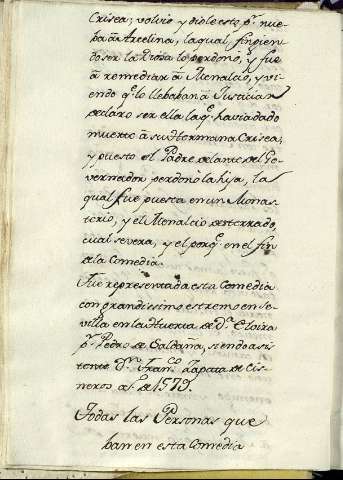 Crisea; volvio y diole esto pr. nue-
ba a Arcelina, la qual fingien-
do ser la Diosa lo perdonó, y fue
a remediar a Menalcio, y vi-
endo q.e lo llebaban a Justiciar
declaro ser ella la q.e havia dado
muerte a su Hermana Crisea;
y puesto el Padre delante del Go-
vernador perdonò la hija, la
qual fue puesta en un Monas-
terio, y el Menalcio desterrado,
cual severa, y el porq.e en el fin
de la Comedia.
Fue representada esta Comedia
con grandissimo estremo en Se-
villa en la Huerta de D.a Eloira
p.r Pedro de Saldaña, siendo asis-
tente D.n Fran.co Zapata de Cis-
neros a.o de 1579.
Todas las Personas que
ban en esta Comedia